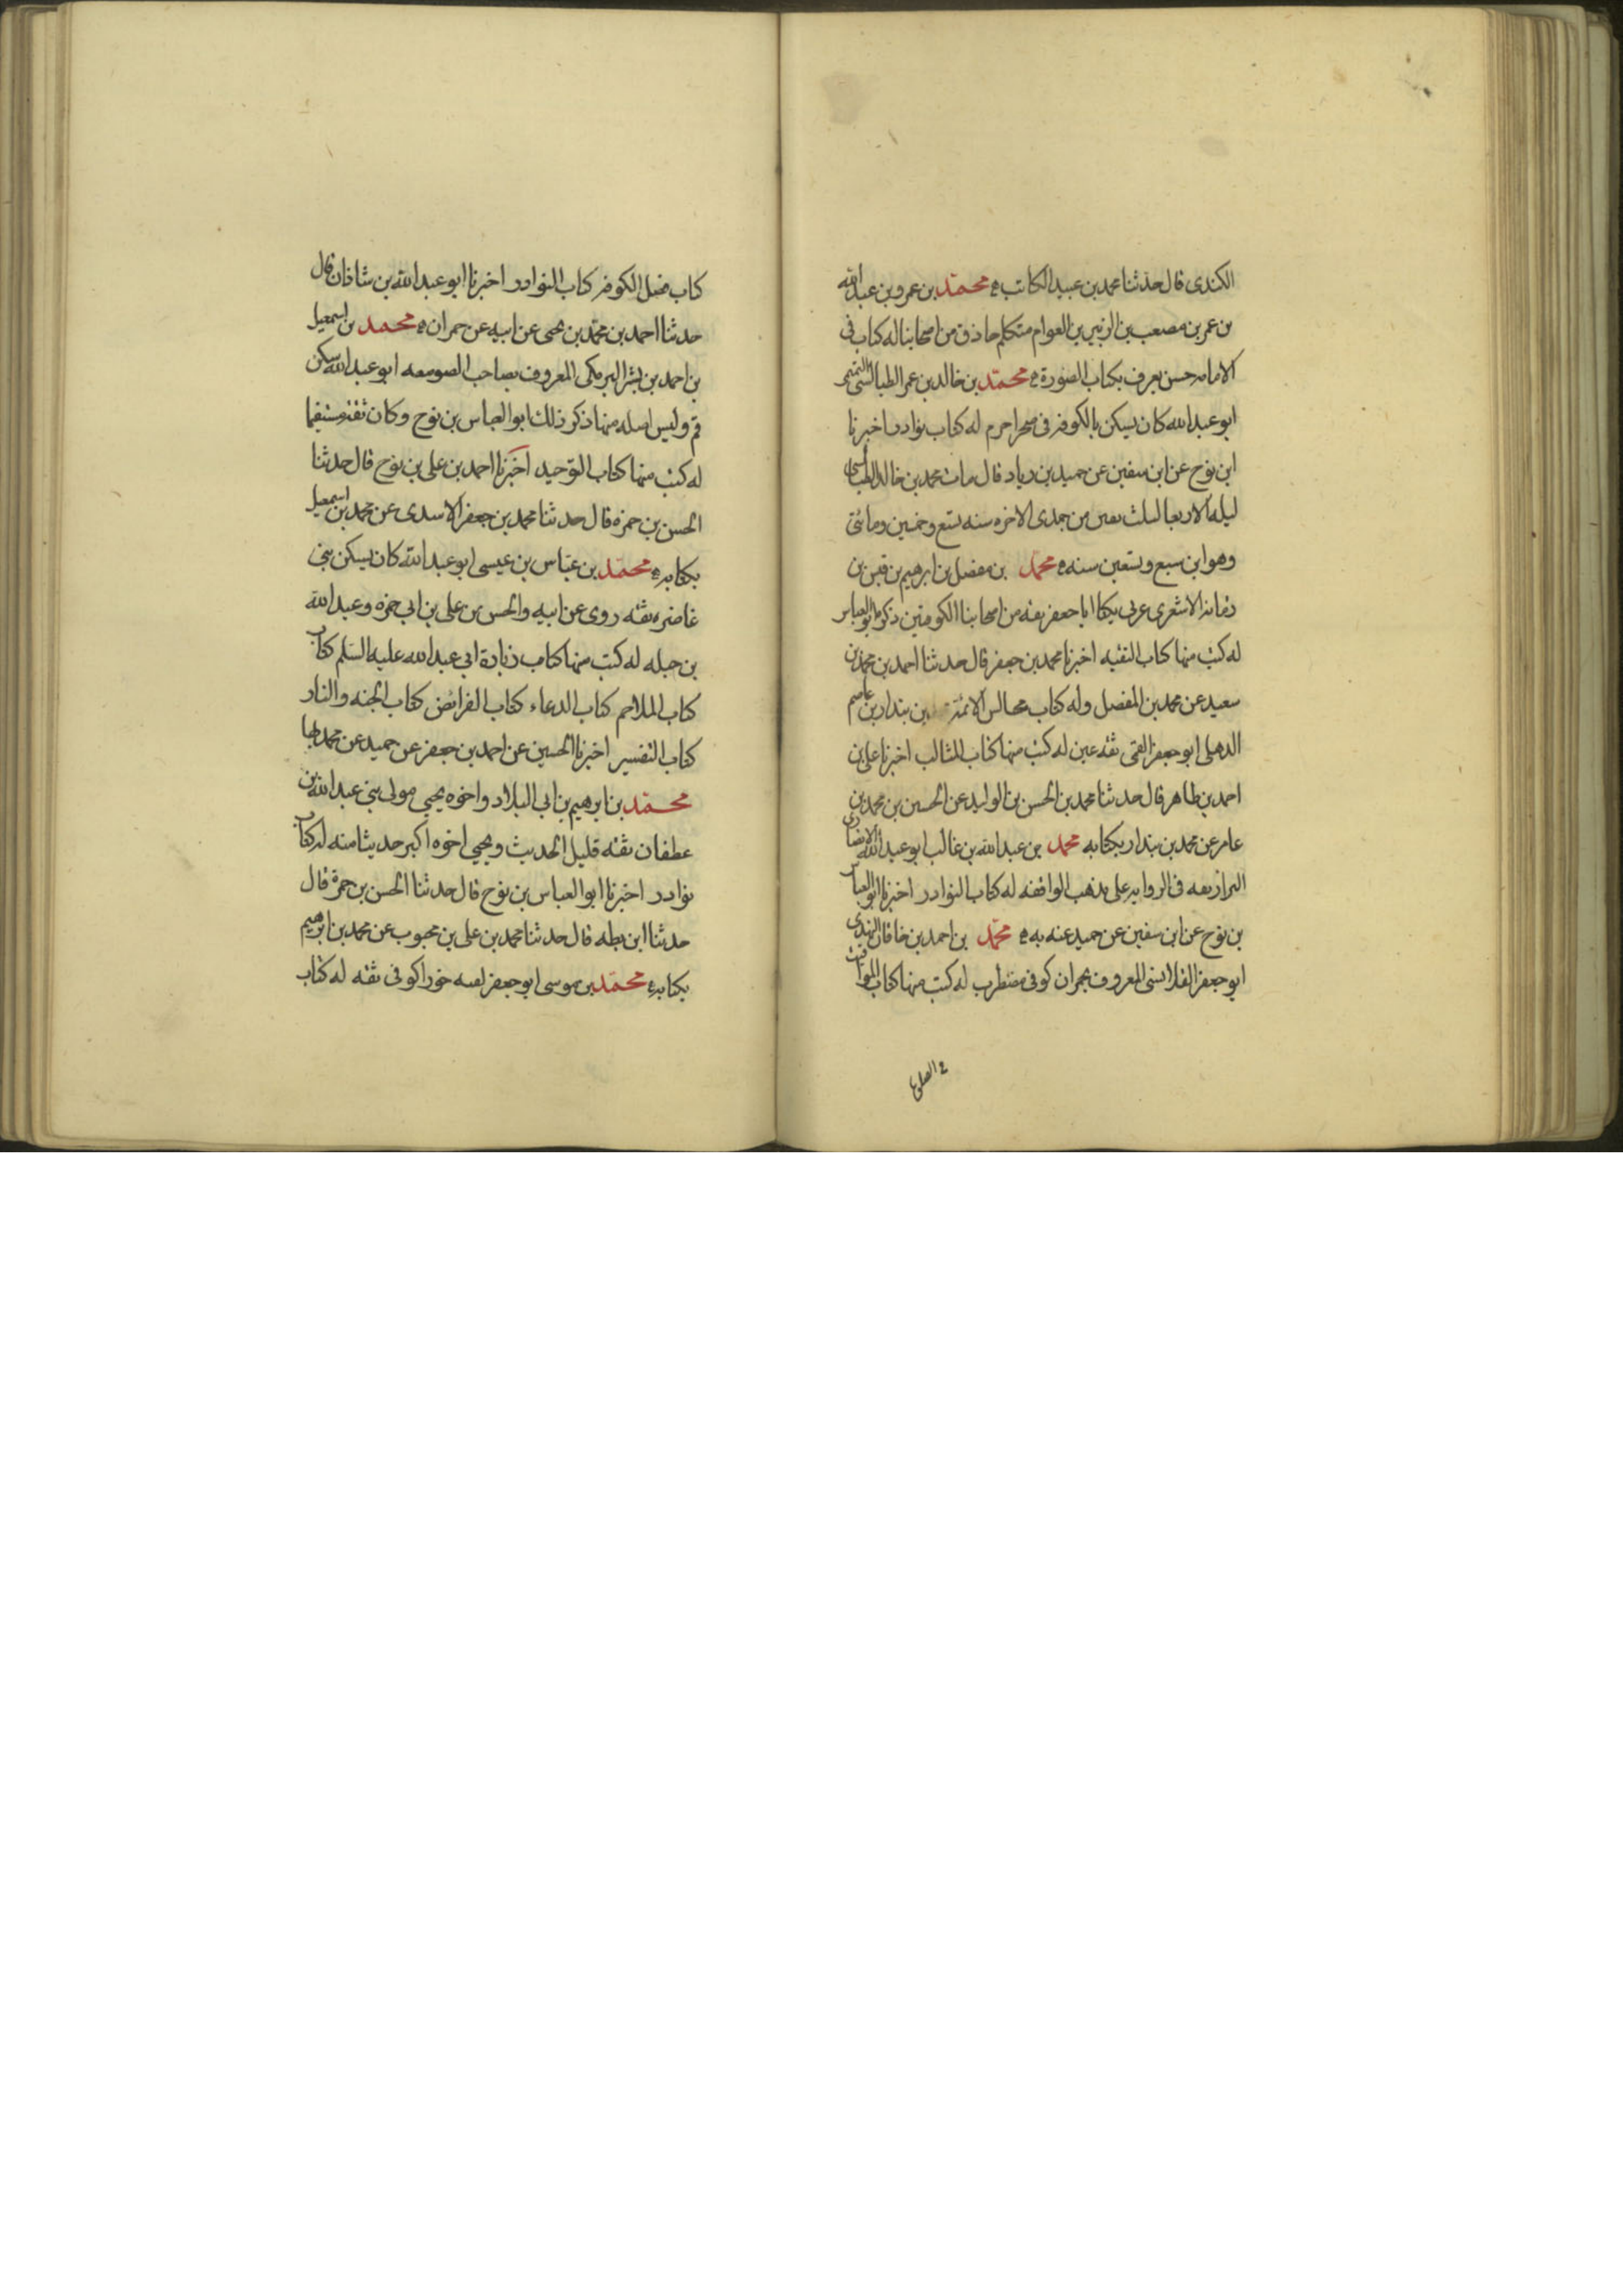 الكندى قال حدثنا محمد بن عبيد الكاتب ه محمد بن عمرو بن عبدالله
بن عمر بن مصعب بن الزبير بن العوام متكلم حاذق من اصحابنا له كتاب فى
الامامه حسن يعرف بكتاب الصورة ه محمد بن خالد بن عمر الطيالسى التميمى
ابو عبدالله كان يسكن بالكوفه فى صحرا جرم له كتاب نوادر اخبرنا
ابن نوح عن ابن سفين عن حميد بن زياد قال مات محمد بن خالد الطيالسى
ليله الاربعا لثلث بقين من جمدى الاخره سنه تسع وخمسين ومائتى
وهو ابن سبع وتسعين سنه ه محمد بن مفضل بن ابرهيم بن قيس بن
رمانه الاشعرى عربى يكنا ابا جعفر ثقه من اصحابنا الكوفيين ذكره ابو العباس
له كتب منها كتاب التقيه اخبرنا محمد بن جعفر قال حدثنا احمد بن محمد بن
سعيد عن محمد بن المفضل وله كتاب مجالس الائمة بن بندار بن عاصم
الدهلى ابو جعفر القمى ثقه عين له كتب منها كتاب المثالب اخبرنا على بن
احمد بن طاهر قال حدثنا محمد بن الحسن بن الوليد عن الحسين بن محمد بن
عامر عن محمد بن بندار بكتابه محمد بن عبدالله بن غالب ابو عبدالله الانصارى
البزاز ثقه فى الروايه على مذهب الواقفه له كتاب النوادر اخبرنا ابو العباس
بن نوح عن ابن سفين عن حميد عنه به ه محمد بن احمد بن خاقان النهدى
ابو جعفر القلانسى المعروف بحمران كوفى مضطرب له كتب منها كتاب المواقيت
كتاب فضل الكوفه كتاب النوادر اخبرنا ابو عبدالله بن شاذان قال
حدثنا احمد بن محمد بن يحيى عن ابيه عن حمران ه محمد بن اسمعيل
بن احمد بن بشر البرمكى المعروف بصاحب الصومعه ابو عبدالله سكن
قم وليس اصله منها ذكر ذلك ابو العباس بن نوح وكان ثقه مستقيما
له كتب منها كتاب التوحيد اخبرنا احمد بن على بن نوح قال حدثنا
الحسن بن حمزه قال حدثنا محمد بن جعفر الاسدى عن محمد بن اسمعيل
بكتابه ه محمد بن عباس بن عيسى ابو عبدالله كان يسكن بنى
غاضره ثقه روى عن ابيه والحسن بن على بن ابى حمزه وعبدالله
بن جبله له كتب منها كتاب زيادة ابى عبدالله عليه السلم كتاب
كتاب الملاحم كتاب الدعاء كتاب الفرائض كتاب الجنه والنار
كتاب التفسير اخبرنا الحسين عن احمد بن جعفر عن حميد عن محمد بها
محمد بن ابرهيم بن ابى البلاد واخوه يحيى مولى بنى عبدالله بن
عطفان ثقه قليل الحديث ويحيى اخوه اكبر حديثا منه له كتاب
نوادر اخبرنا ابو العباس بن نوح قال حدثنا الحسن بن حمزة قال
حدثنا ابن بطه قال حدثنا محمد بن على بن محبوب عن محمد بن ابرهيم
بكتابه ه محمد بن موسى ابو جعفر لقبه خورا كوفى ثقه له كتاب